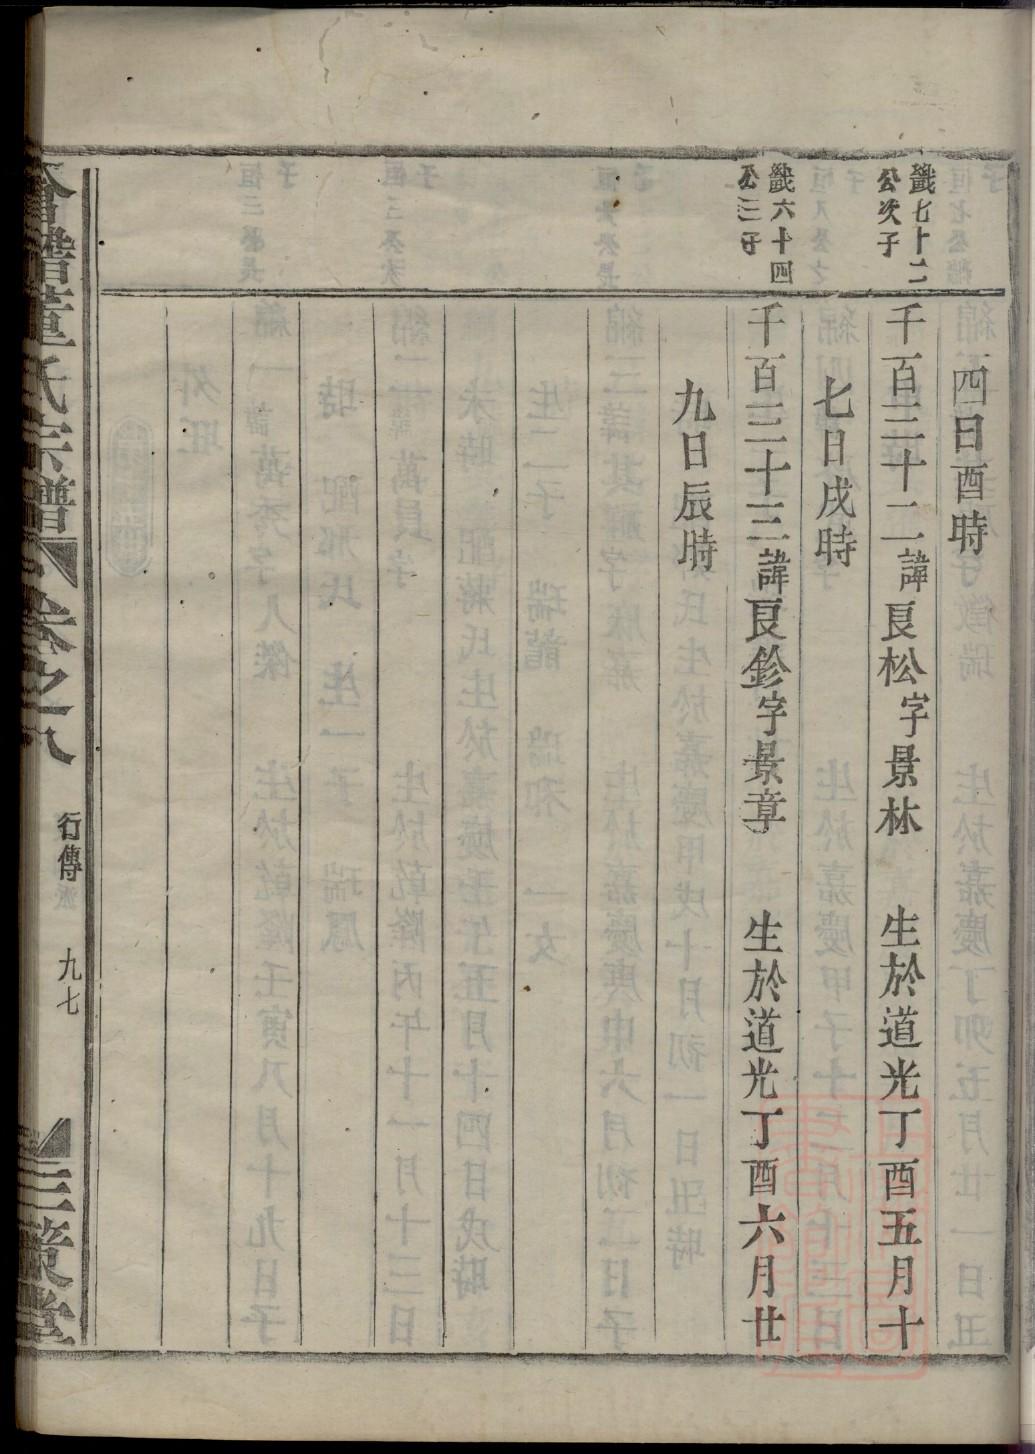 四日酉時
鐖七十二
公次子
千百三十二諱良松字景林 生於道光丁酉五月十
七日戌時
鐖六十四
公三子
千百三十三諱良鈐字景章 生於道光丁酉六月廿
九日辰時
合譜董氏宗譜 卷之八 行傳 九七 三策堂